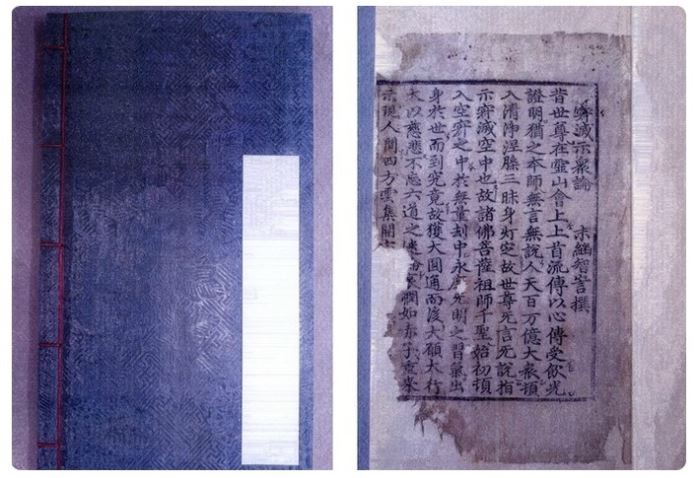 寂滅示衆論 末繼智訔撰
昔世尊在靈山會上上首流傳以心傳受飮光
證明猶之本師無言無說人天百万億大衆頓
入清淨涅槃三昧身灯空故世尊无言无說指
示寂滅空中也故諸佛菩薩祖師千聖始初頓
入空寂之中於無量刼中永无明之習氣出
身於世而到究竟故獲大圓通而發大願大行
大以慈悲不忘六道之迷憫如赤子
示現人間四方雲集開